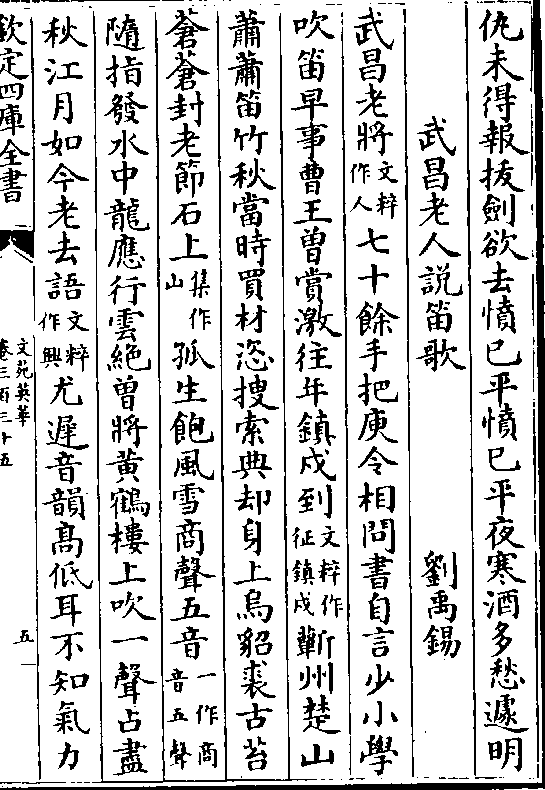 仇未得報拔劍欲去憤已平憤已平夜寒酒多愁遽明
武昌老人說笛歌 劉禹錫
武昌老將文粹作人七十餘手把庾令相問書自言少小學
吹笛早事曹王曾賞激往年鎮戍到文粹作征鎮戍蘄州楚山
蕭蕭笛竹秋當時買材恣搜索典却身上烏貂裘古苔
蒼蒼封老節石上集作山孤生飽風雪商聲五音一作商音五聲
隨指發水中龍應行雲絕曾將黃鶴樓上吹一聲占盡
秋江月如今老去語文粹作興尤遲音韻高低耳不知氣力
欽定四庫全書
文苑英華
卷三百三十五
五